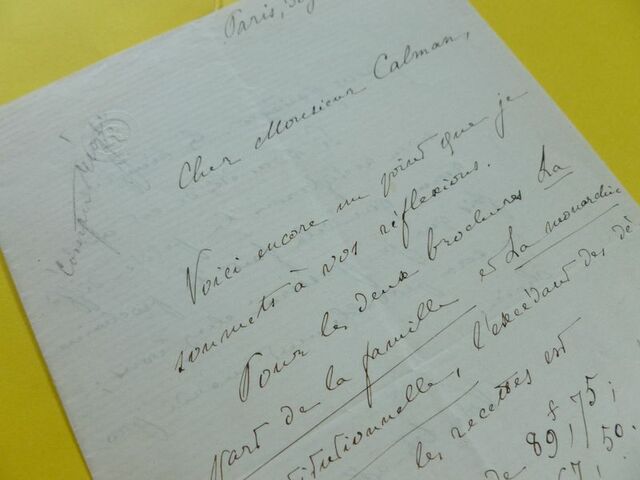 Paris,
Cher Monsieur Calman,
Voici encore un point que je
soumets à vos réflexions.
Pour les deux brochures La
part de la famille et La monarchie
titutionnelle, l'excédant des dé
les recettes est
de 89,75;
67,50.